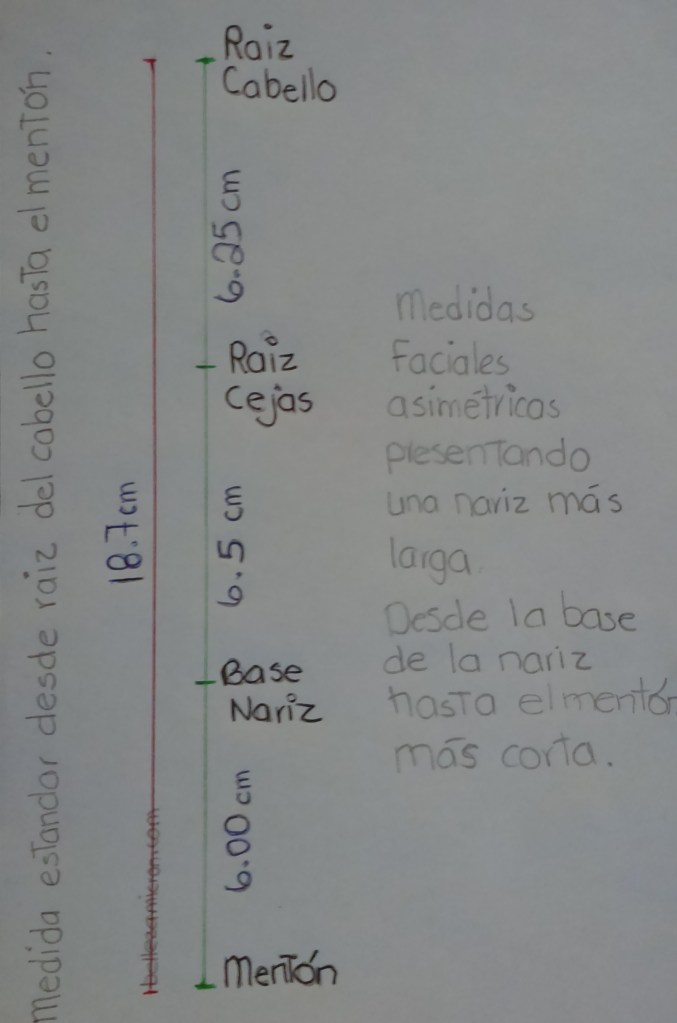 Medida estandar desde raiz del cabello hasta el mentón.
18.7cm
bellezamicron.com
Raiz
Cabello
6.25 cm
Raiz
Cejas
6.5 cm
Base
Nariz
6.00 cm
Mentón
Medidas
Faciales
asimétricas
presentando
una nariz más
larga.
Desde la base
de la nariz
hasta el mentón
más corta.